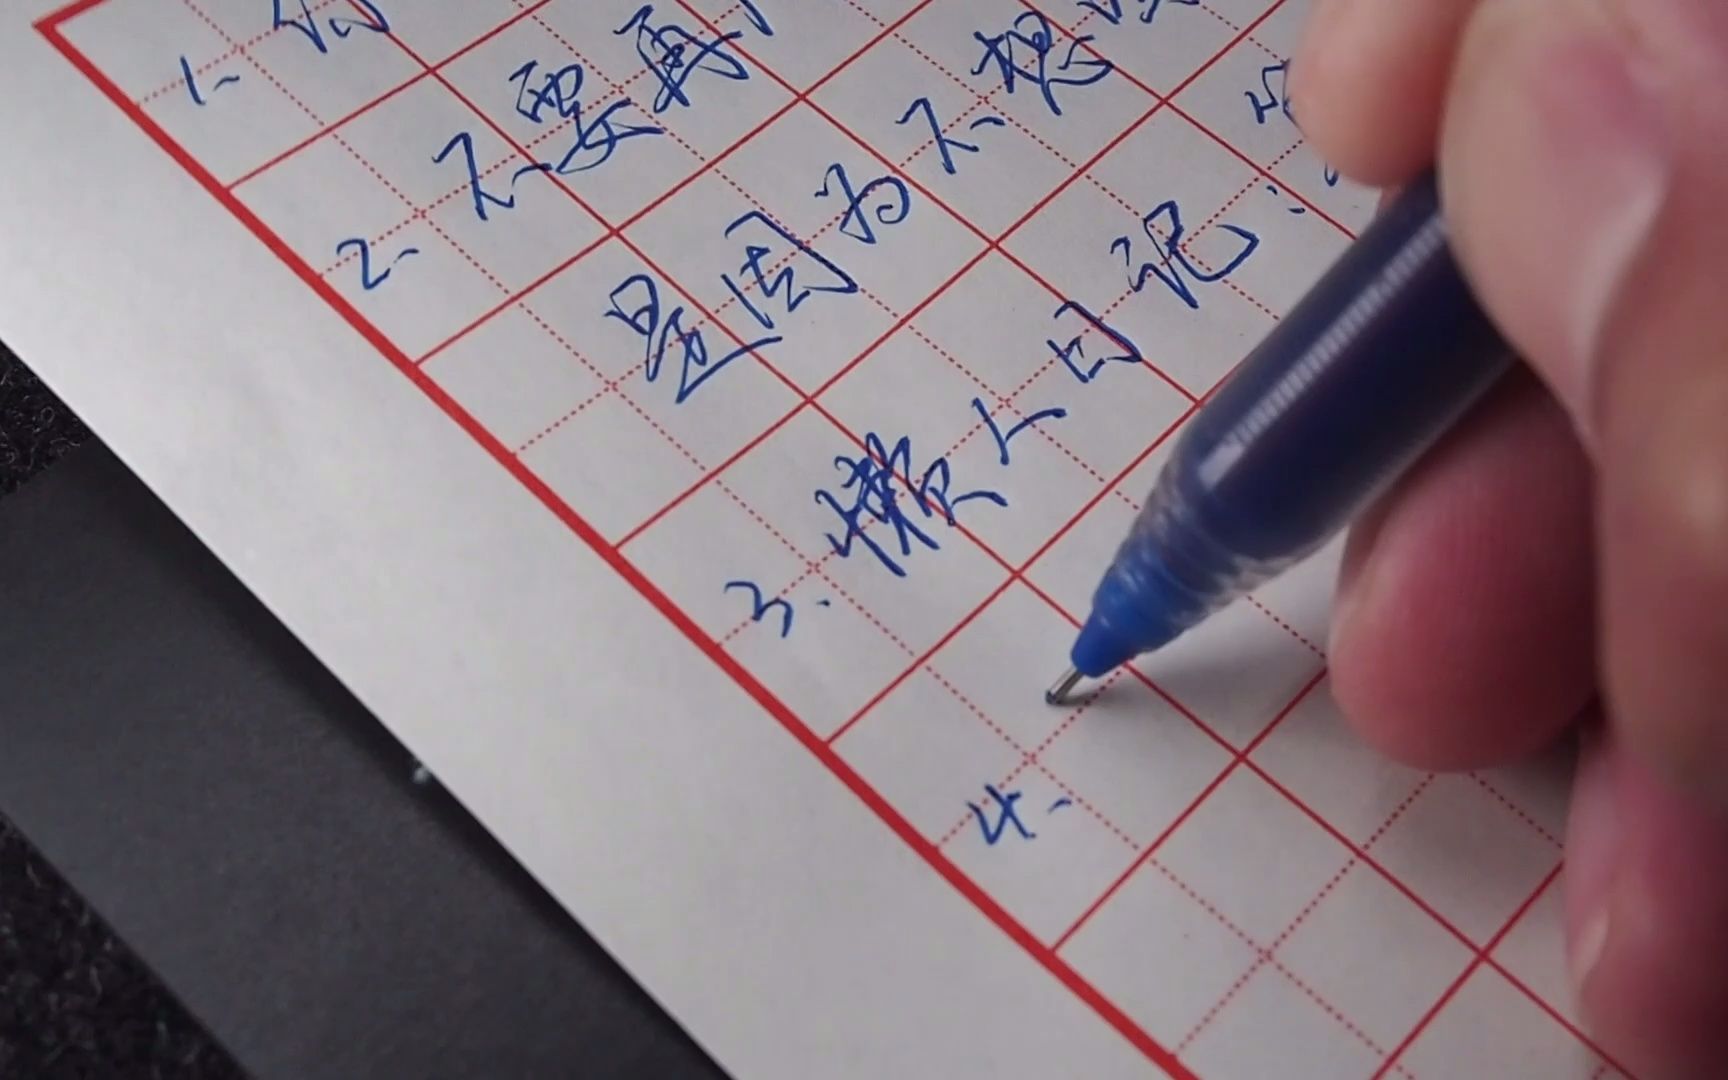 1、
2、不要再
是因为不想
3、懒人日记:
4、